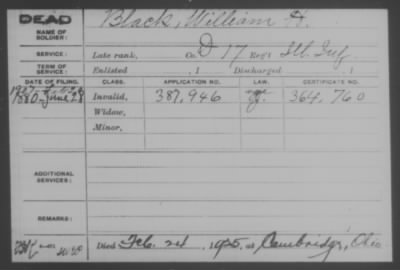 DEAD
NAME OF
SOLDIER:
Black, William H.
SERVICE:
Late rank, Co. D 17 Reg't Ill. Inf.
TERM OF
SERVICE:
Enlisted , 1 Discharged , 1
DATE OF FILING. CLASS. APPLICATION NO. LAW. CERTIFICATE NO.
1880-June 28 Invalid, 387,946 364,760
Widow,
Minor,
ADDITIONAL
SERVICES:
REMARKS:
Died Feb. 24, 1925, at Cambridge, Ohio